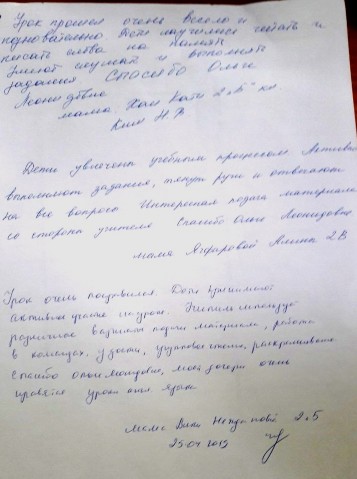 Урок прошел очень весело и
познавательно. Дети научились читать и
писать слова на память
Умеют слушать и выполнять
задания. Спасибо Ольге
Леонидовне
мама Ким Кати 2 "Б" кл.
Ким Н.В
Дети увлечены учебным процессом Активно
выполняют задания, тянут руки и отвечают
на все вопросы Интересная подача материала
со стороны учителя Спасибо Ольге Леонидовне
мама Ягфаровой Амины 2В
Урок очень понравился. Дети принимают
активное участие на уроке. Учитель использует
различные варианты подачи материала, работа
в командах, у доски, групповое чтение, раскрашивание
Спасибо Ольге Леонидовне, моей дочери очень
нравятся уроки англ языка
Мама Вики 2 Б
25.04 2019